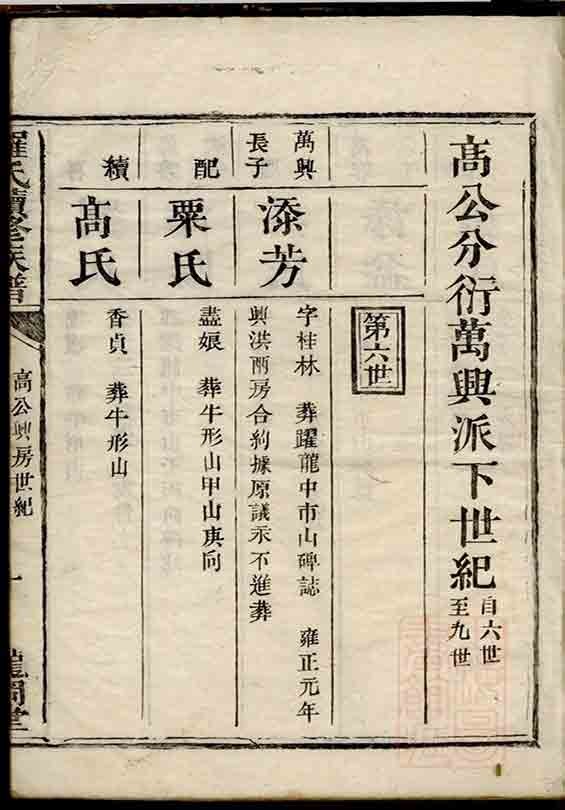 高公分衍萬興派下世紀
自六世
至九世
第六世
萬興
長子
添芳
字桂林 葬躍龍中市山碑誌 雍正元年
興洪兩房合約據原議示不進葬
配
粟氏
盡娘 葬牛形山甲山庚向
續
高氏
香貞 葬牛形山
羅氏續修族譜
高公興房世紀
一